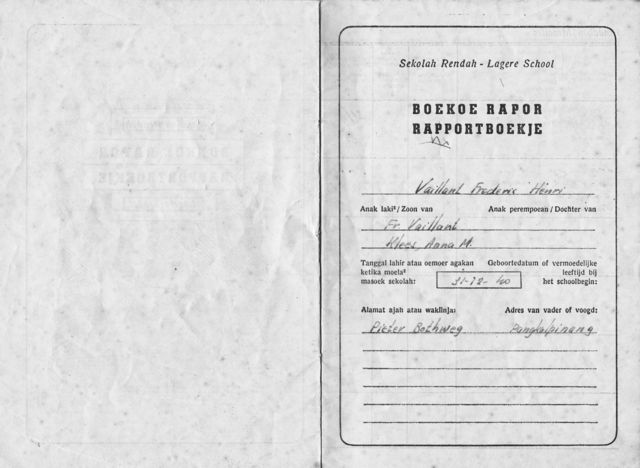 Sekolah Rendah - Lagere School
BOEKOE RAPOR
RAPPORTBOEKJE
Vaillant Frederic Henri
Anak laki²/Zoon van Anak perempoean/Dochter van
Fr Vaillant
Klees, Anna M.
Tanggal lahir atau oemoer agakan Geboortedatum of vermoedelijke
ketika moela² leeftijd bij
masoek sekolah: 31-12-40 het schoolbegin:
Alamat ajah atau waklinja: Adres van vader of voogd:
Pieter Bothweg Pangkalpinang